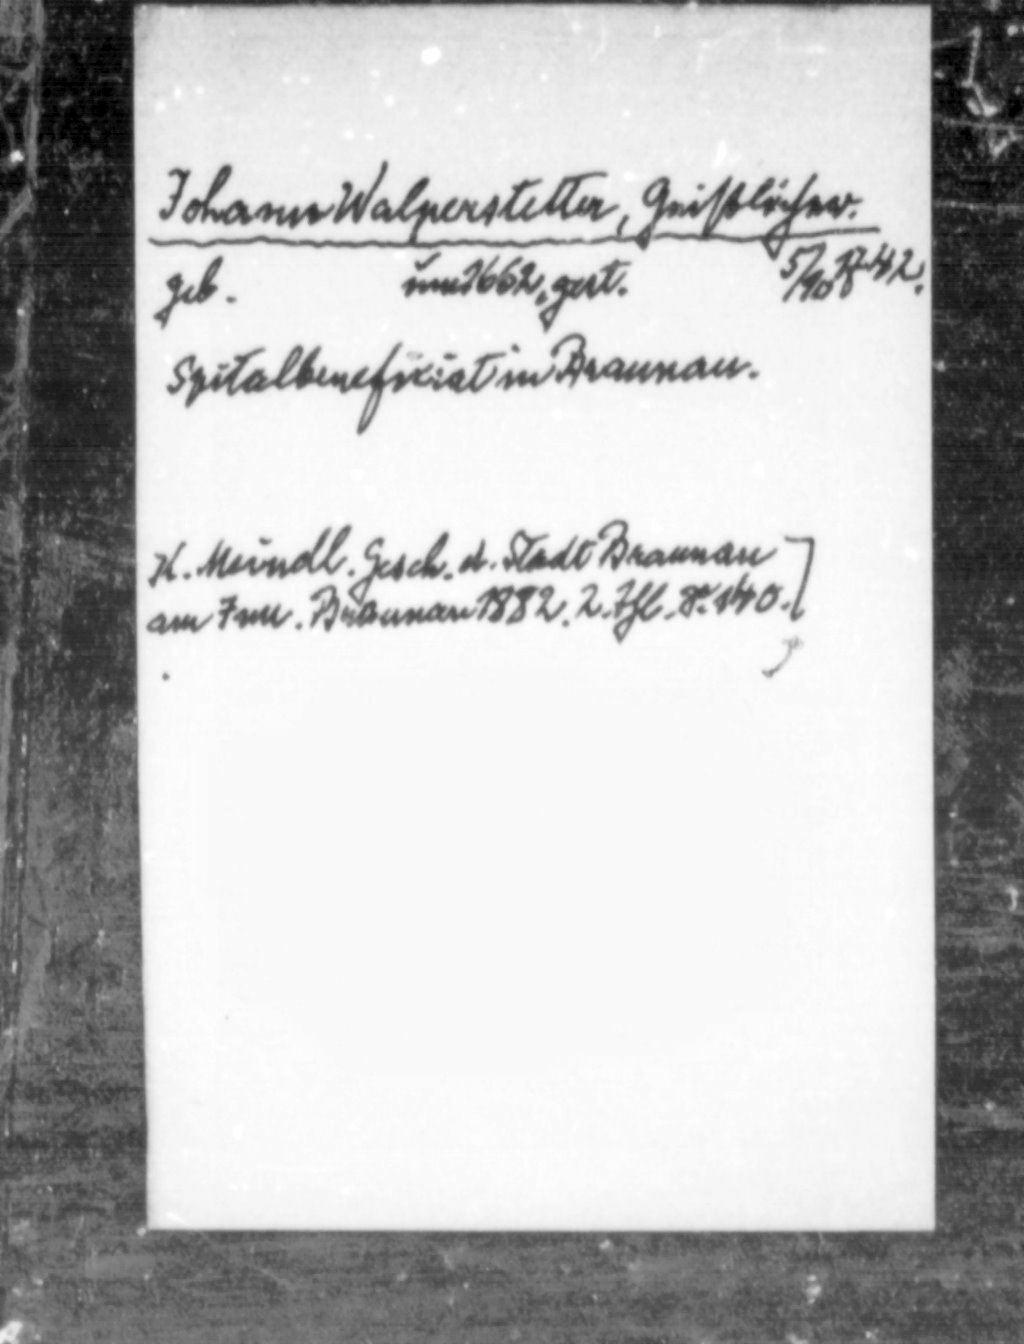 Johann Walperstetter, Geistlicher.
geb. um 1662, gest. 5/10 1742.
Spitalbenefiziat in Braunau.
K. Meindl. Gesch. d. Stadt Braunau
am Inn. Braunau 1882. 2. Thl. S. 140.